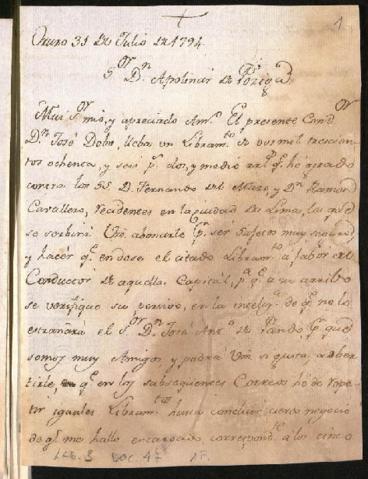 1
Oruro 31 de Julio de 1794
S.or D.n Apolinar de
Mui S.or mio, y apreciado Am.o El presente Cond.or
D.n José Dobo, lleba un Libram.to de dos mil trecien
tos ochenta, y seis p.s dos, y medio rr.s q.e he girado
contra los SS. D. Fernando del Mazo, y D.n Ramon
Cavallero, recidentes en la ciudad de Lima, los que
se serbirá Vm. abonarle p.r ser sujetos muy
y hacer q.e endose el citado Libram.to a fabor del
Conductor de aquella Capital, p.a q.e a su arribo
se verifique su en la intelig.a de q.e no lo
estrañará el S.or D.n José Ant.o de Pando p.r que
somos muy Amigos y podrá Vm. si gusta, adber
tirle q.e en los subsequentes Correos he de repe
tir iguales Libram.tos hasta concluir cierto negocio
de q.e me hallo encargado, correspond.te a los cinco
LEG. 3 DOC. 47 1F.